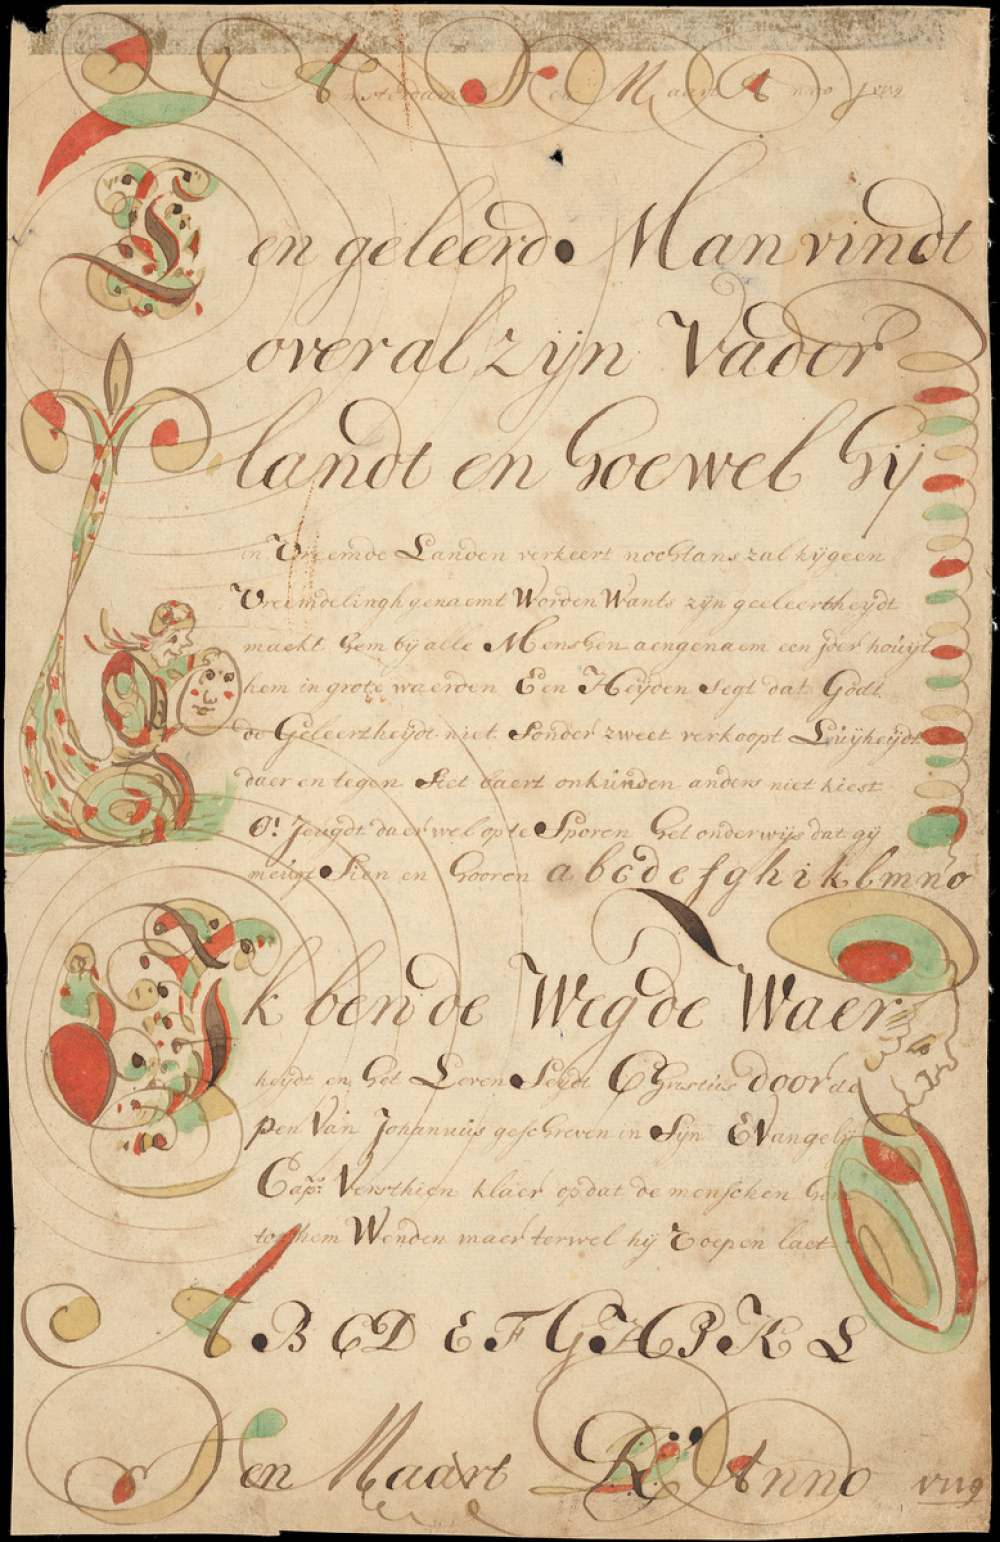 Amsterdam Den Maart Anno
Een geleerd Man vindt
overal zijn Vader
landt en hoewel hij
in Vreemde Landen verkeert nochtans zal hij geen
Vreemdelingh genaemt Worden Wants zijn geeleertheydt
maekt hem bij alle Menshen aengenaem een jder houijt
hem in grote waerden Een Heijden segt dat Godt
de Geleertheijdt niet Sonder zweet verkoopt Luijheijdt
daer en tegen Siet baert onkunden anders niet kiest
O! Jeugdt daer wel op te Sporen het onderwijs dat gij
meugt Sien en hooren a b c d e f g h i k l m n o
Ik ben de Weg de Waer
heijdt en het Leven Seijdt Christus door de
pen Van Johannus geschreven in Sijn Evangelij
Cap: Verthien klaer op dat de menschen haer
tot hem Wenden maer terwel hij Roepen laet
A B C D E F G H I K L
Den Maart Anno